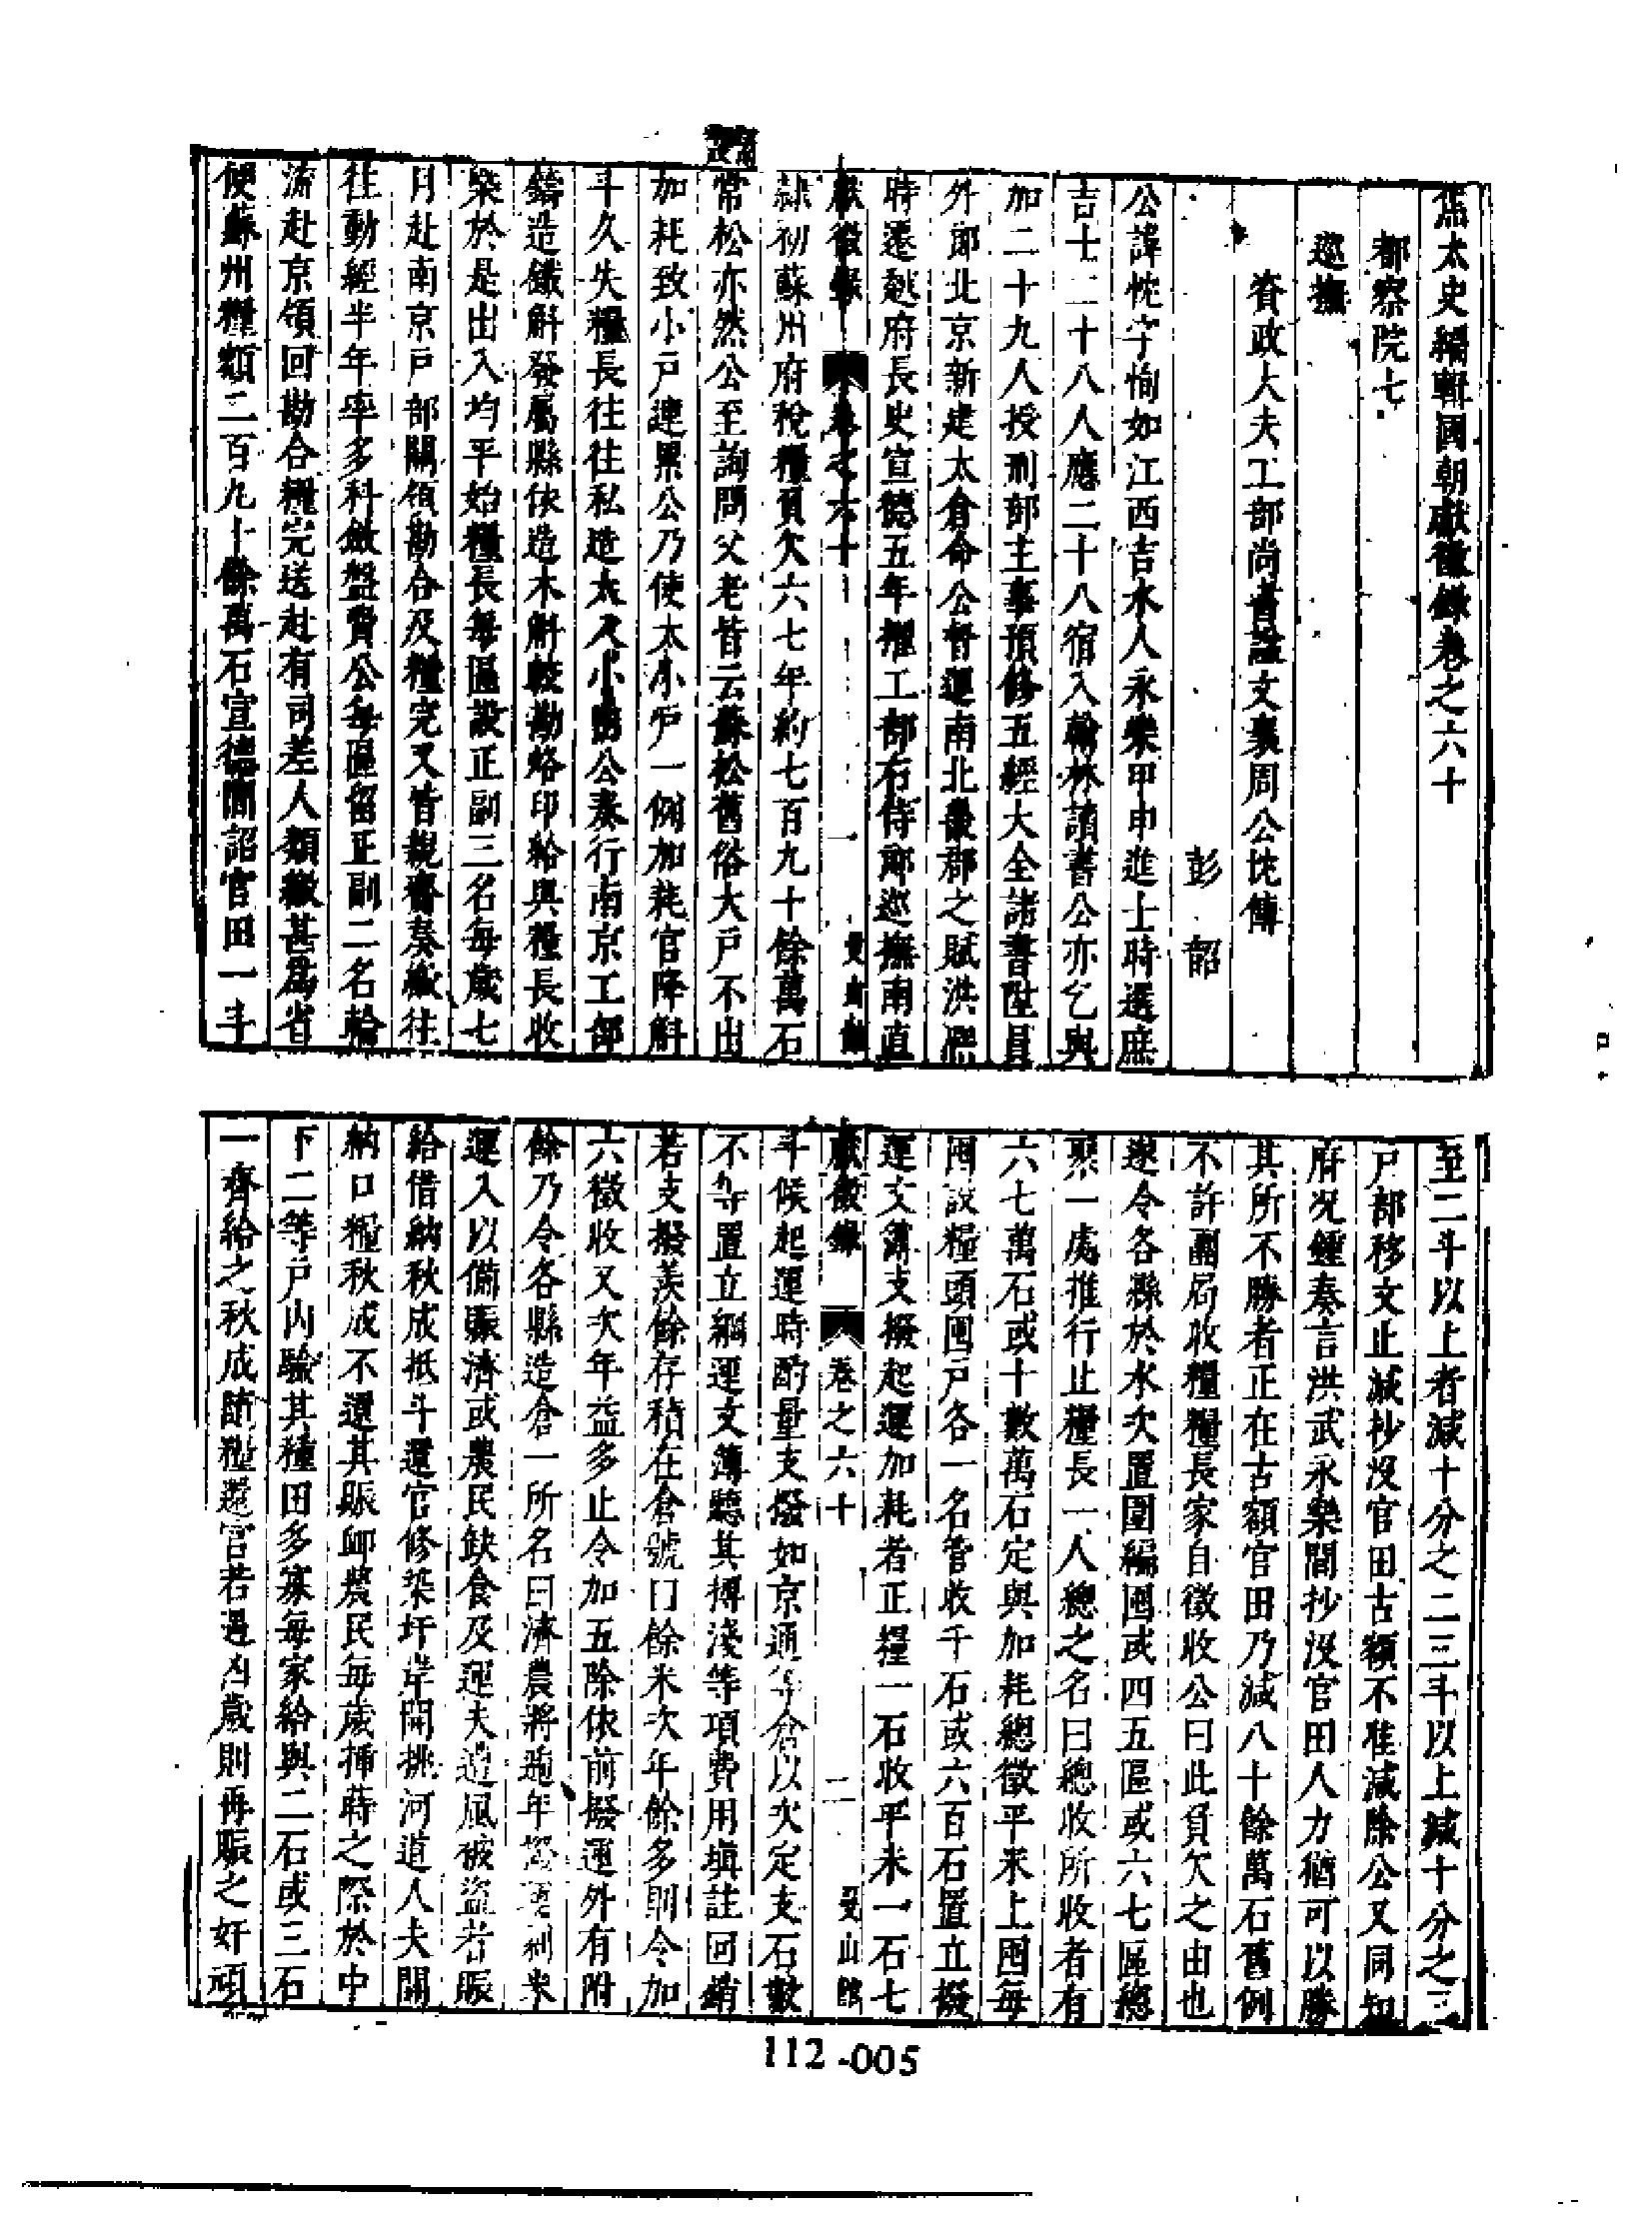 焦太史編輯國朝獻徵錄卷之六十
都察院七
巡撫
資政大夫工部尚書諡文襄周公忱傳
彭韶
公諱忱字恂如江西吉水人永樂甲申進士時選庶
吉士二十八人應二十八宿入翰林讀書公亦乞與
加二十九人授刑部主事預修五經大全諸書陞員
外郎北京新建太倉命公督運南北畿郡之賦洪熙
時遷越府長史宣德五年擢工部右侍郎巡撫南直
獻徵錄 卷之六十 一 曼山館
隸初蘇州府稅糧負欠六七年約七百九十餘萬石
常松亦然公至詢問父老皆云蘇松舊俗大戶不出
加耗致小戶連累公乃使大小戶一例加耗官降斛
斗久失糧長往往私造大入小出公奏行南京工部
鑄造鐵斛發屬縣依造木斛較勘烙印給與糧長收
槩於是出入均平始糧長每區設正副三名每歲七
月赴南京戶部關領勘合及糧完又皆親齎奏繳往
往動經半年率多科斂盤費公每區留正副二名輪
流赴京領回勘合糧完送赴有司差人類繳甚爲省
便蘇州糧額二百九十餘萬石宣德間詔官田一斗
至二斗以上者減十分之二三斗以上減十分之三
戶部移文止減抄沒官田古額不准減除公又同知
府況鍾奏言洪武永樂間抄沒官田人力猶可以勝
其所不勝者正在古額官田乃減八十餘萬石舊例
不許團局收糧糧長家自徵收公曰此負欠之由也
遂令各縣於水次置圍編囤或四五區或六七區總
聚一處推行止糧長一人總之名曰總收所收者有
六七萬石或十數萬石定與加耗總徵平米上囤每
囤設糧頭囤戶各一名管收千石或六百石置立撥
運文簿支撥起運加耗者正糧一石收平米一石七
獻徵錄 卷之六十 二 曼山館
斗候起運時酌量支撥如京通等倉以次定支石數
不等置立綱運文簿聽其摶淺等項費用塡註回銷
若支撥羨餘存積在倉號曰餘米次年餘多則令加
六徵收又次年益多止令加五除依前撥運外有附
餘乃令各縣造倉一所名曰濟農將遞年  利米
運入以備賑濟或農民缺食及運夫遭風被盜者賑
給借納秋成抵斗還官修築圩岸開挑河道人夫關
納口糧秋成不還其賑卹農民每歲揷蒔之際於中
下二等戶內驗其種田多寡每家給與二石或三石
一齊給之秋成隨糧還官若遇凶歲則再賑之奸頑
112-005